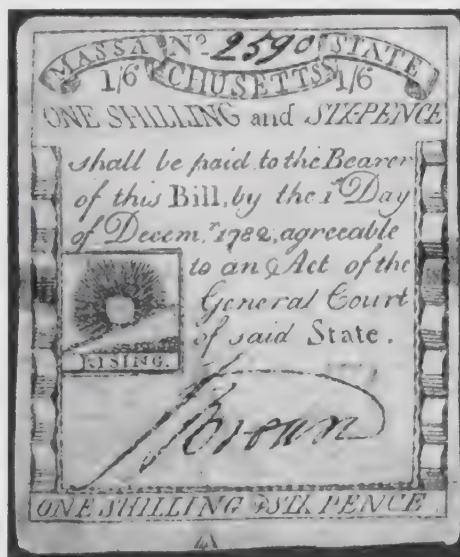 MASSA Nº 2590 STATE
1/6 CHUSETTS 1/6
ONE SHILLING and SIX-PENCE
shall be paid to the Bearer
of this Bill, by the 1st Day
of Decem.r 1782, agreeable
to an Act of the
General Court
of said State.
RISING.
Brown
ONE SHILLING & SIX PENCE